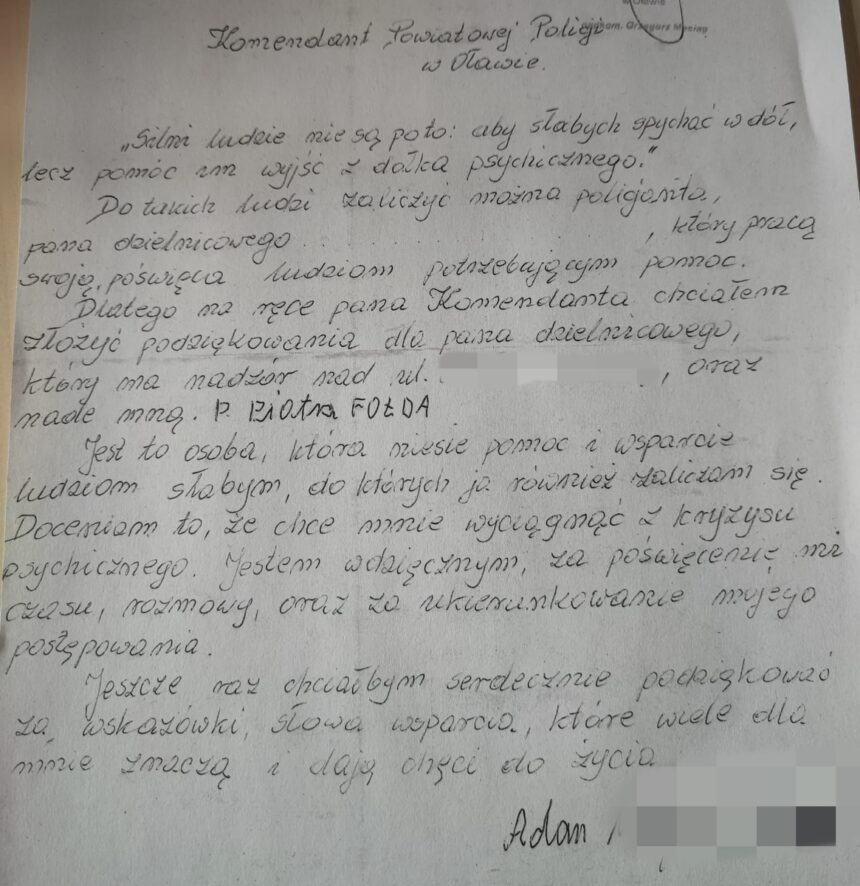 w Oławie
Grzegorz
Komendant Powiatowej Policji
w Oławie.
„Silni ludzie nie są po to: aby słabych spychać w dół,
lecz pomóc im wyjść z dołka psychicznego."
Do takich ludzi zaliczyć można policjanta,
pana dzielnicowego , który pracą
swoją, poświęca ludziom potrzebującym pomoc.
Dlatego na ręce pana Komendanta chciałem
złożyć podziękowania dla pana dzielnicowego,
który ma nadzór nad ul. , oraz
nade mną. P. Piotra FOŁDA
Jest to osoba, która niesie pomoc i wsparcie
ludziom słabym, do których ja również zaliczam się.
Doceniam to, że chce mnie wyciągnąć z kryzysu
psychicznego. Jestem wdzięcznym, za poświęcenie mi
czasu, rozmowy, oraz za ukierunkowanie mojego
postępowania.
Jeszcze raz chciałbym serdecznie podziękować
za, wskazówki, słowa wsparcia, które wiele dla
mnie znaczą i dają chęci do życia
Adam